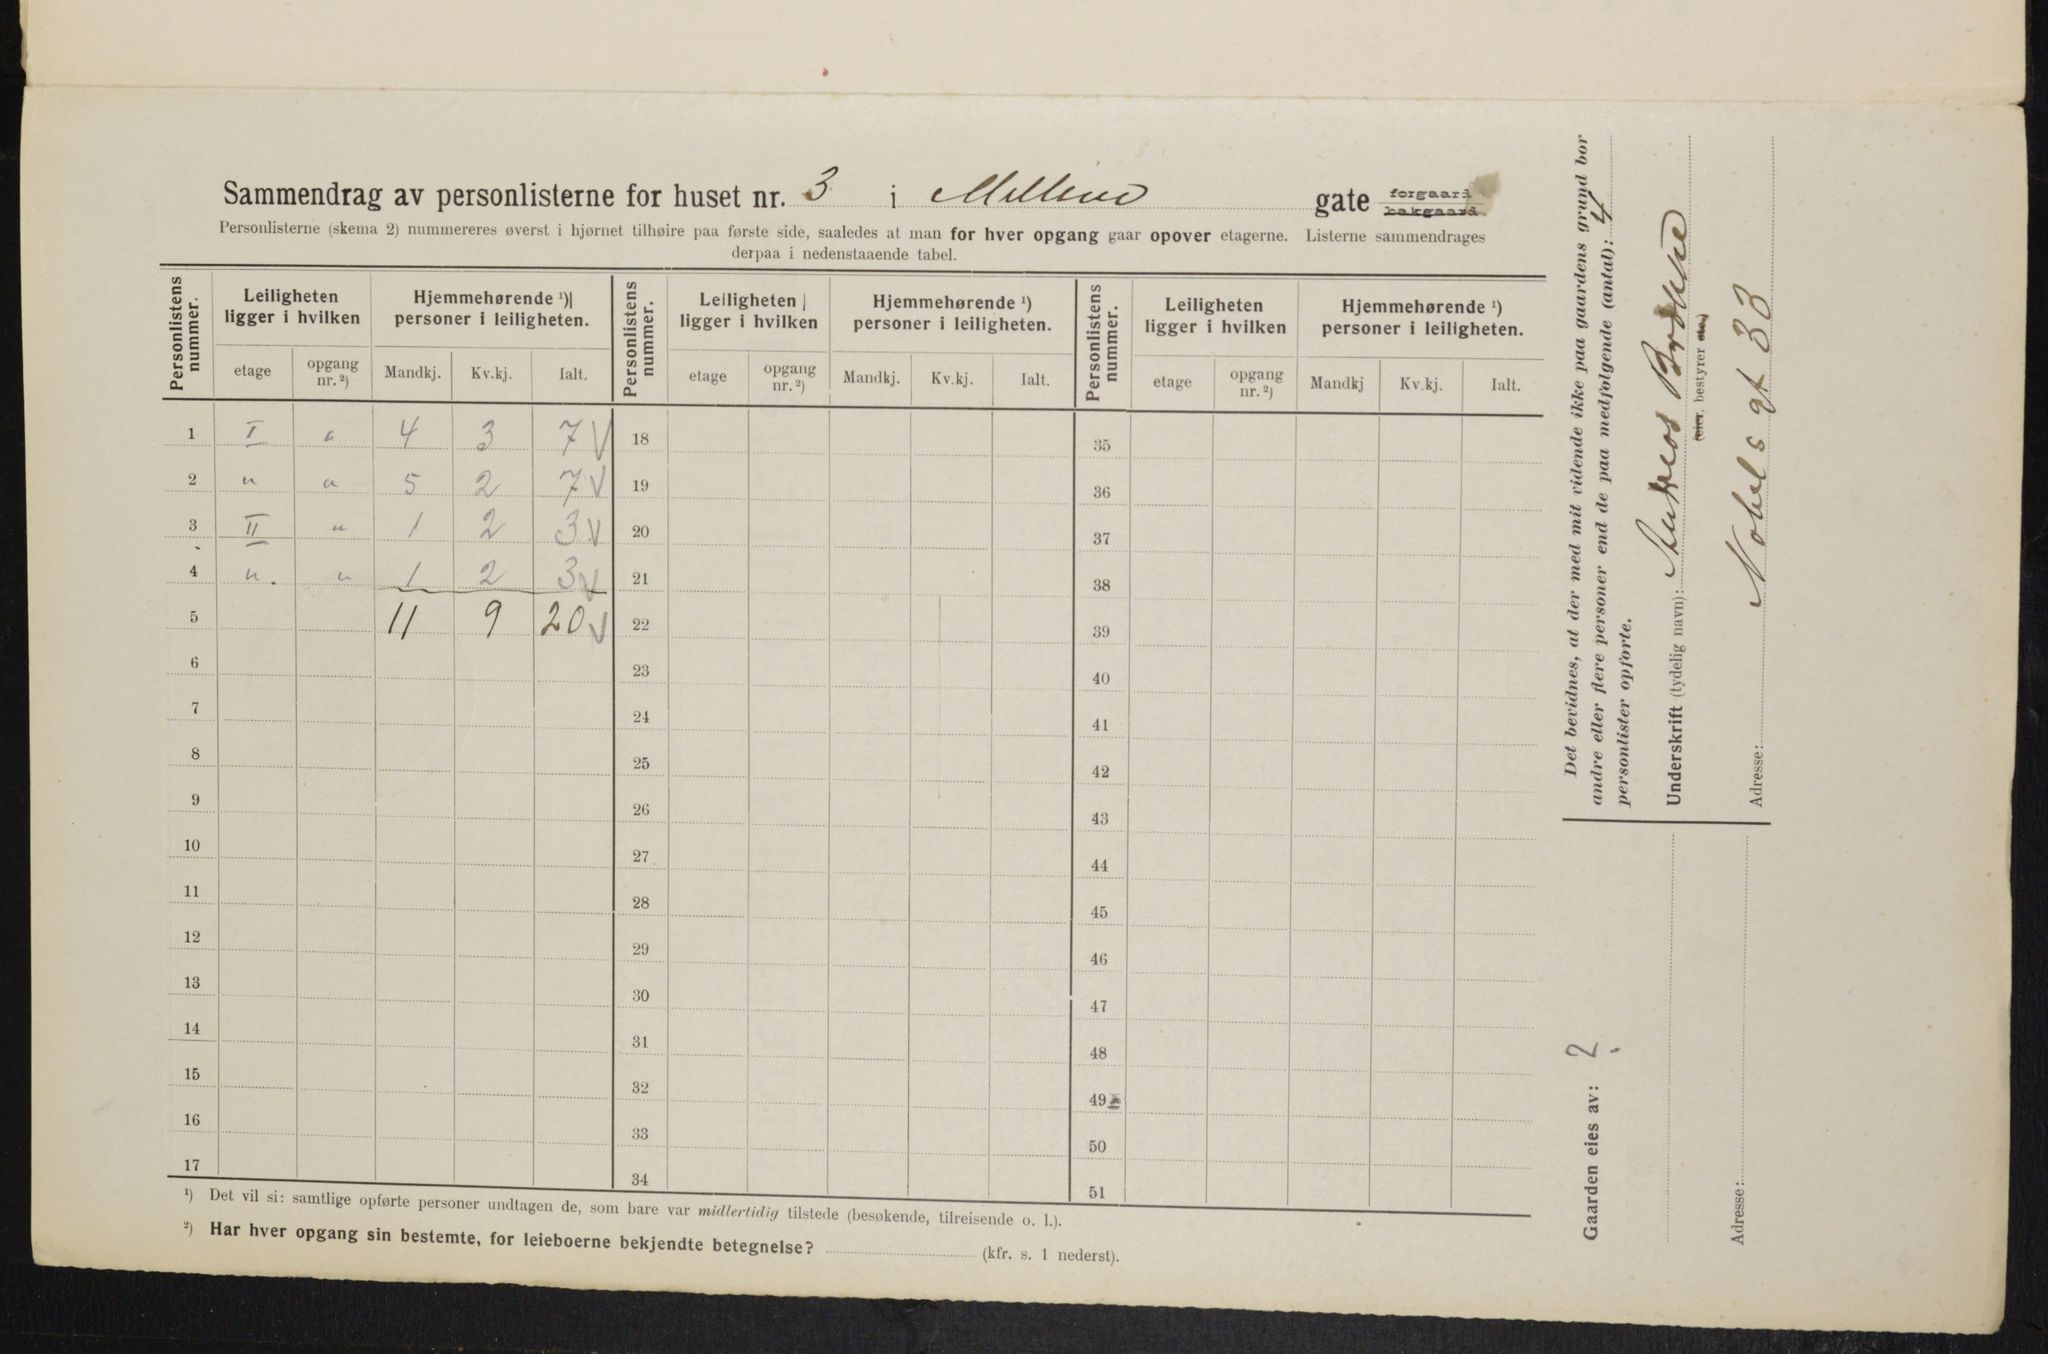 Sammendrag av personlisterne for huset nr. 3 i gate forgaard bakgaard
Personlisterne (skema 2) nummereres øverst i hjørnet tilhøire paa første side, saaledes at man for hver opgang gaar opover etagerne. Listerne sammendrages
derpaa i nedenstaaende tabel.
Personlistens nummer. Leiligheten ligger i hvilken Hjemmehørende ¹) personer i leiligheten. Personlistens nummer. Leiligheten ligger i hvilken Hjemmehørende ¹) personer i leiligheten. Personlistens nummer. Leiligheten ligger i hvilken Hjemmehørende ¹) personer i leiligheten.
etage opgang nr. ²) Mandkj. Kv.kj. Ialt. etage opgang nr. ²) Mandkj. Kv.kj. Ialt. etage opgang nr. ²) Mandkj Kv.kj. Ialt.
1 I 4 3 7 √ 18 35
2 " " 5 2 7 √ 19 36
3 II " 1 2 3 √ 20 37
4 " " 1 2 3 √ 21 38
5 11 9 20 √ 22 39
6 23 40
7 24 41
8 25 42
9 26 43
10 27 44
11 28 45
12 29 46
13 30 47
14 31 48
15 32 49
16 33 50
17 34 51
¹) Det vil si: samtlige opførte personer undtagen de, som bare var midlertidig tilstede (besøkende, tilreisende o. l.).
²) Har hver opgang sin bestemte, for leieboerne bekjendte betegnelse? (kfr. s. 1 nederst).
Det bevidnes, at der med mit vidende ikke paa gaardens grund bor
andre eller flere personer end de paa medfølgende (antal): 4
personlister opførte.
Underskrift (tydelig navn):
(eier, bestyrer etc.)
Adresse: Nobels gt 33
Gaarden eies av: ?
Adresse: